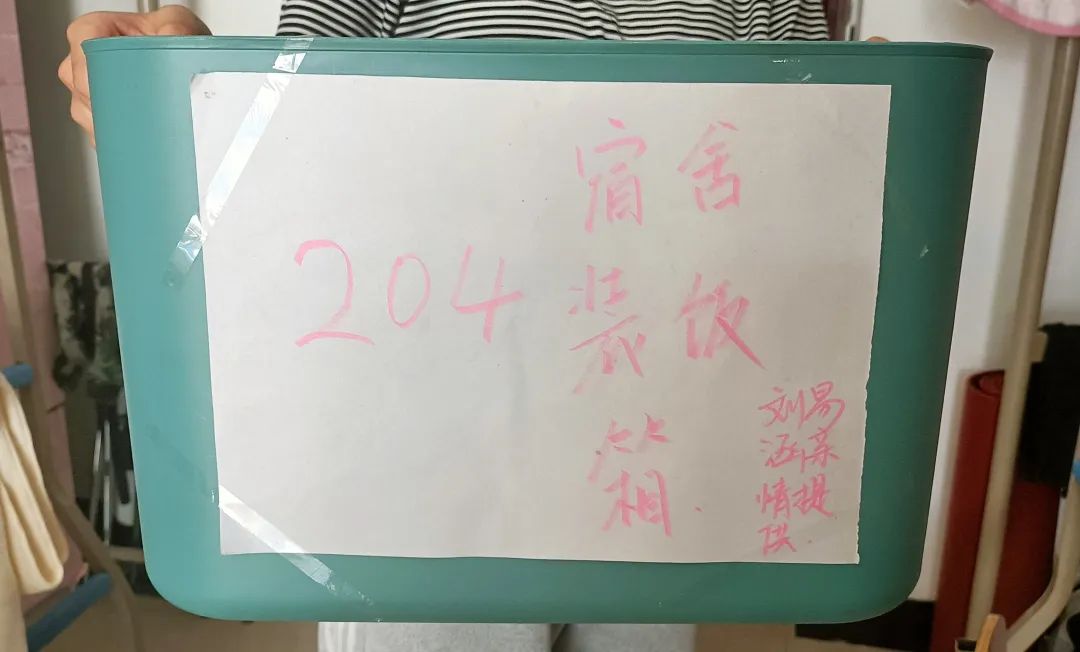 宿舍
204
装饭
箱.
刘易
涵
情提
供.